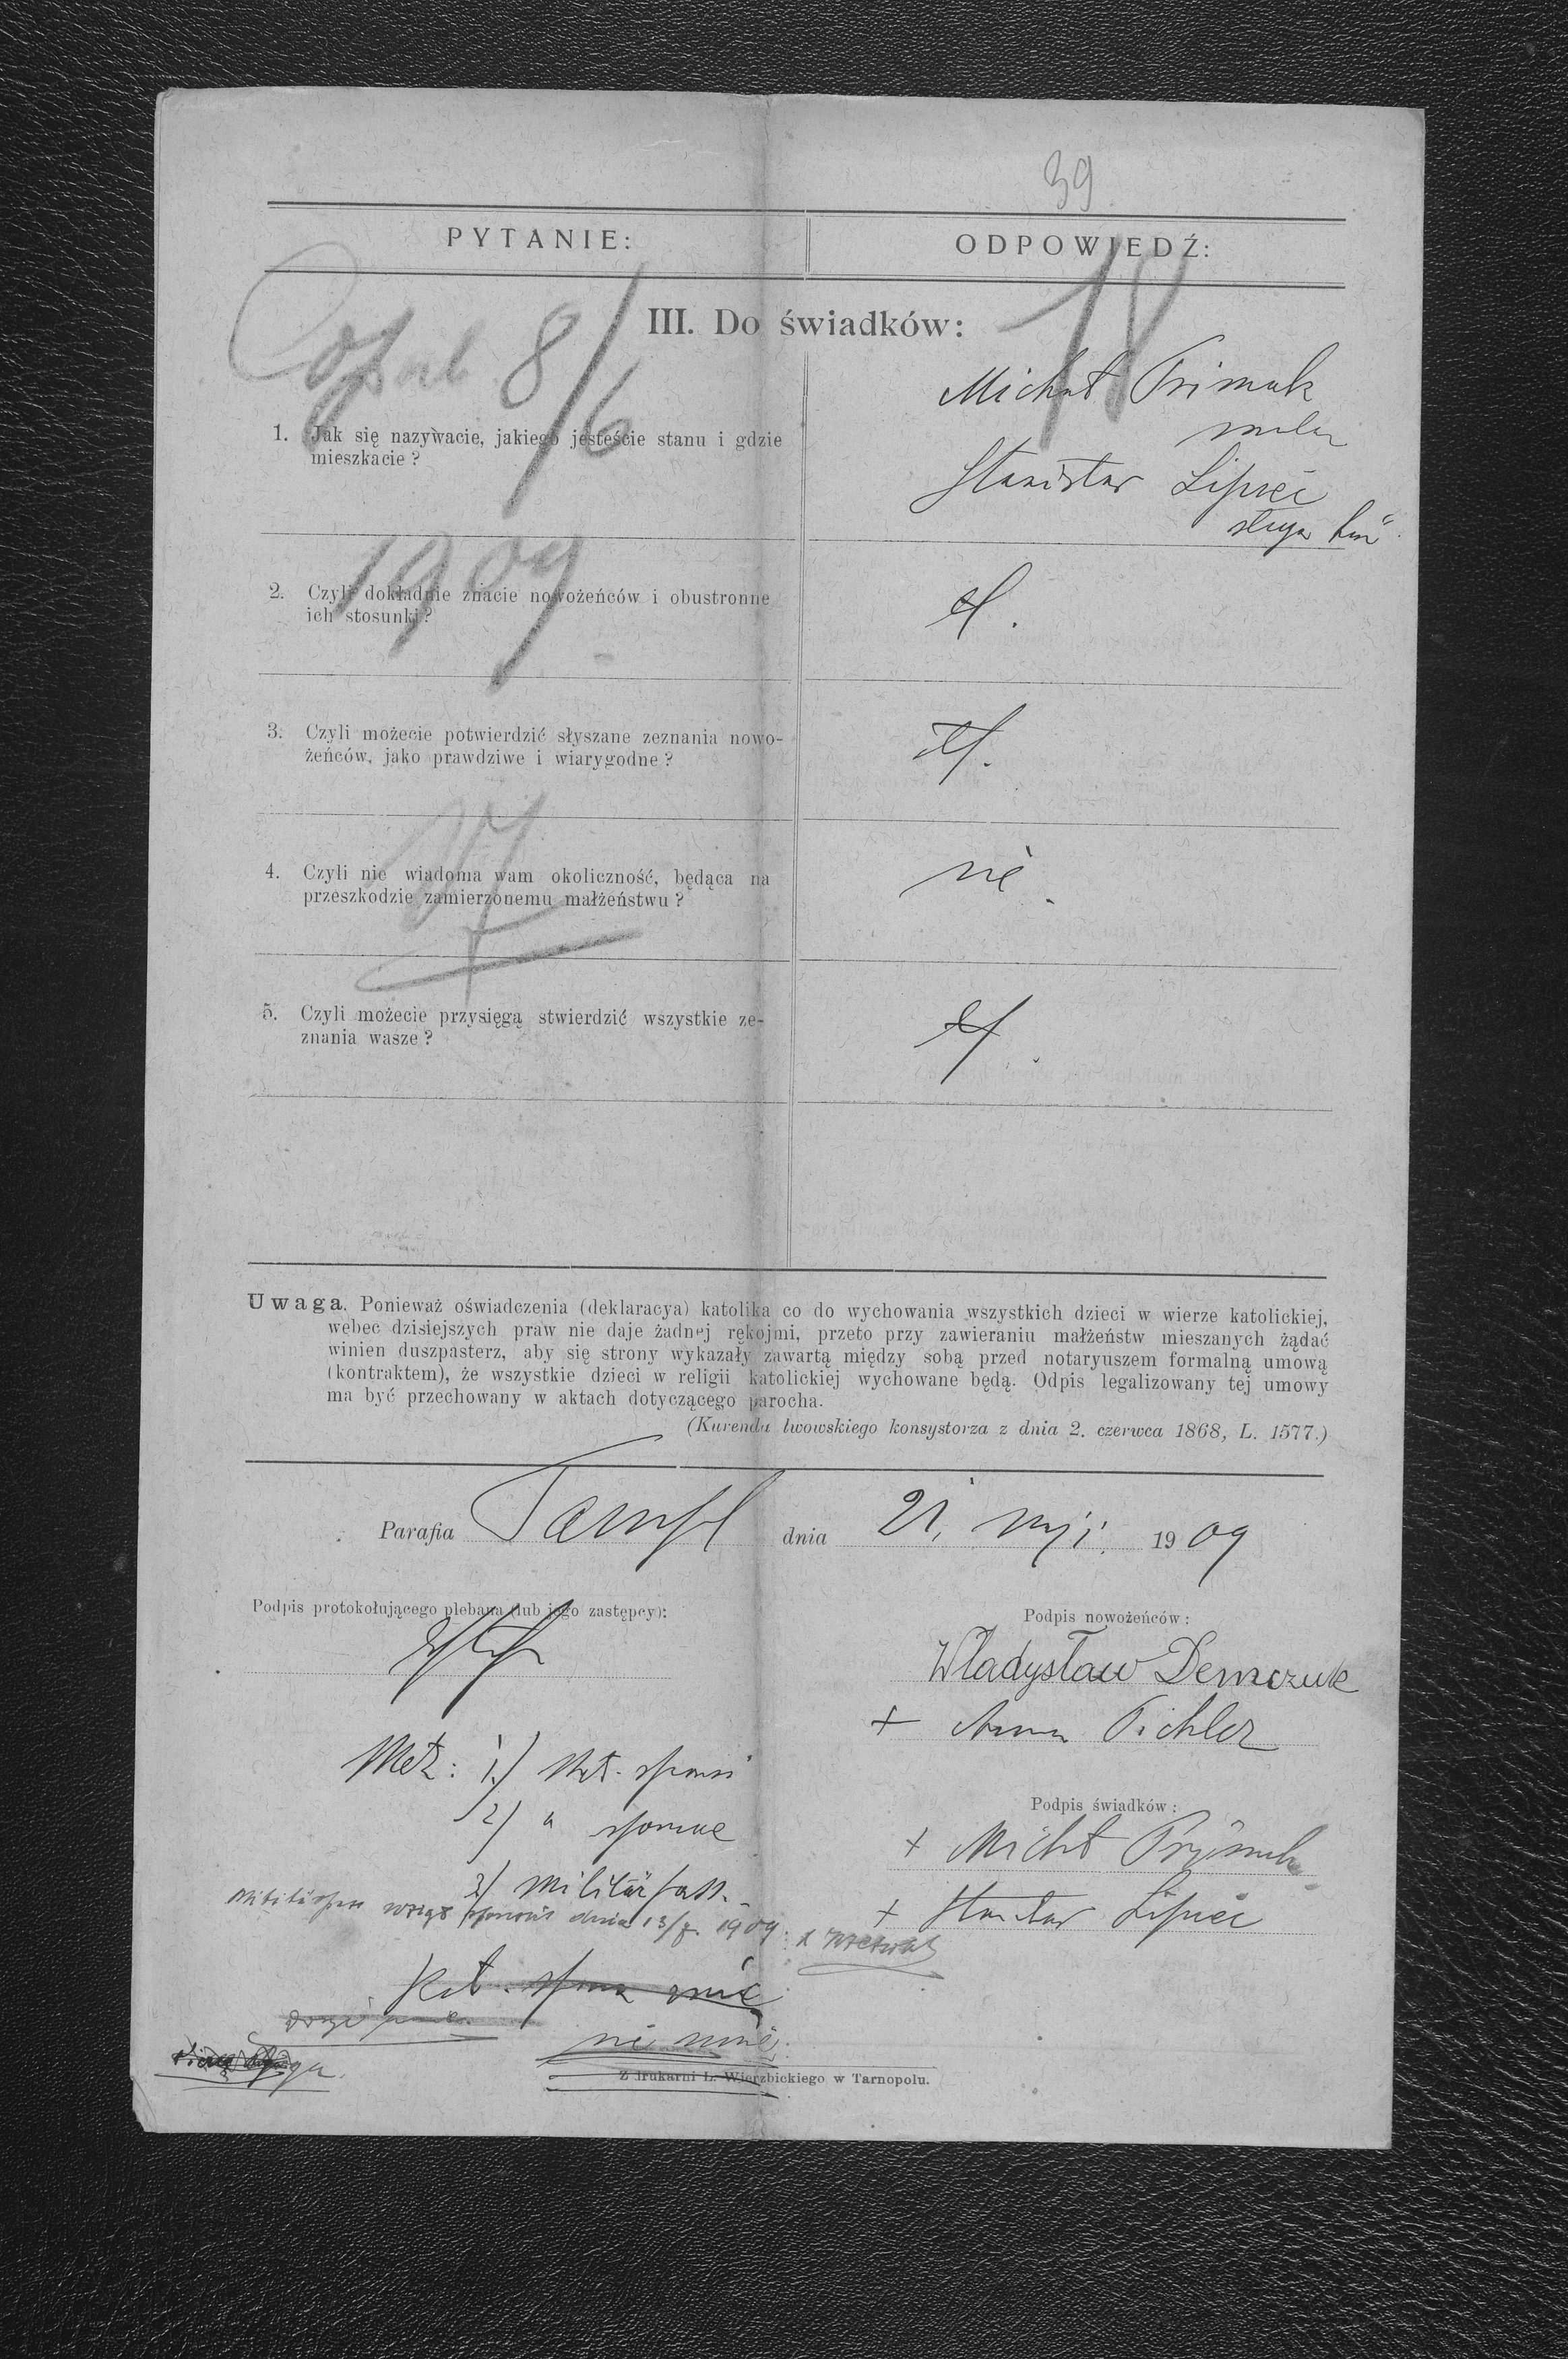 39
PYTANIE:
ODPOWIEDŹ:
III. Do świadków:
8/6
1909
1. Jak się nazywacie, jakiego jesteście stanu i gdzie
mieszkacie?
Michał Primak
Stanisław Lipiec
sługa
2. Czyli dokładnie znacie nowożeńców i obustronne
ich stosunki?
3. Czyli możecie potwierdzić słyszane zeznania nowo-
żeńców, jako prawdziwe i wiarygodne?
4. Czyli nie wiadoma wam okoliczność, będąca na
przeszkodzie zamierzonemu małżeństwu?
nie
5. Czyli możecie przysięgą stwierdzić wszystkie ze-
znania wasze?
Uwaga. Ponieważ oświadczenia (deklaracya) katolika co do wychowania wszystkich dzieci w wierze katolickiej,
webec dzisiejszych praw nie daje żadnej rękojmi, przeto przy zawieraniu małżeństw mieszanych żądać
winien duszpasterz, aby się strony wykazały zawartą między sobą przed notaryuszem formalną umową
(kontraktem), że wszystkie dzieci w religii katolickiej wychowane będą. Odpis legalizowany tej umowy
ma być przechowany w aktach dotyczącego parocha.
(Kurenda lwowskiego konsystorza z dnia 2. czerwca 1868, L. 1577.)
Parafia Tarnopol dnia 21. maji. 1909
Podpis protokołującego plebana (lub jego zastępcy):
Podpis nowożeńców:
Władysław Demczuk
+ Anna Pichler
Metr: 1.) Met. sponsi
2) " sponsae
3) Militärpass.
dnia 13/7. 1909.
Podpis świadków:
+ Michał Prymak
+ Stanisław Lipiec
nie umie
Z drukarni L. Wierzbickiego w Tarnopolu.